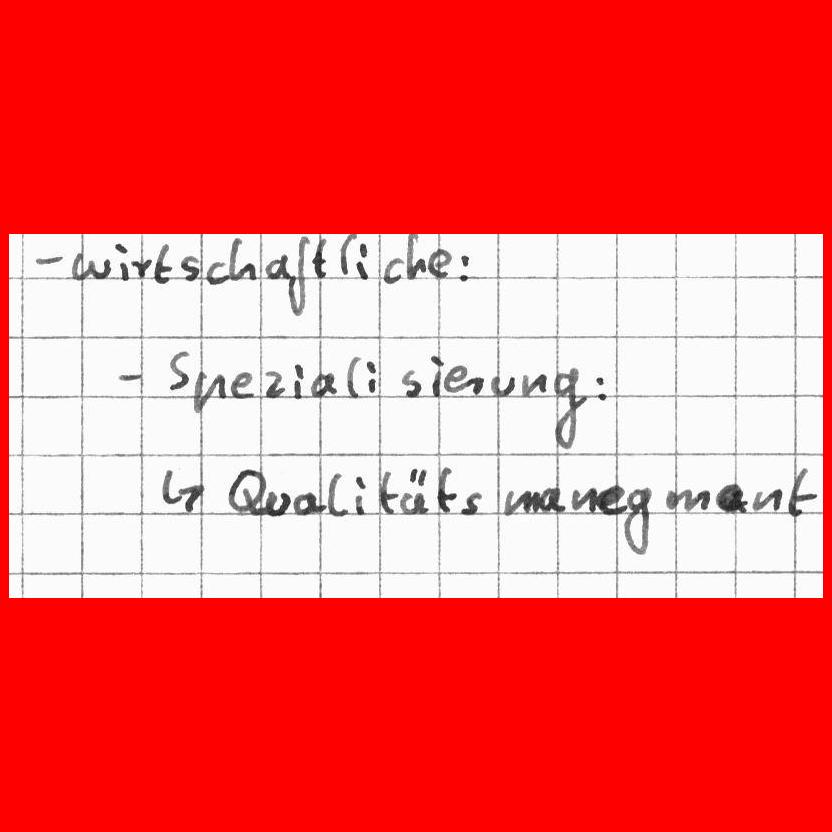 - wirtschaftliche:
- Spezialisierung:
↳ Qualitätsmanegmant